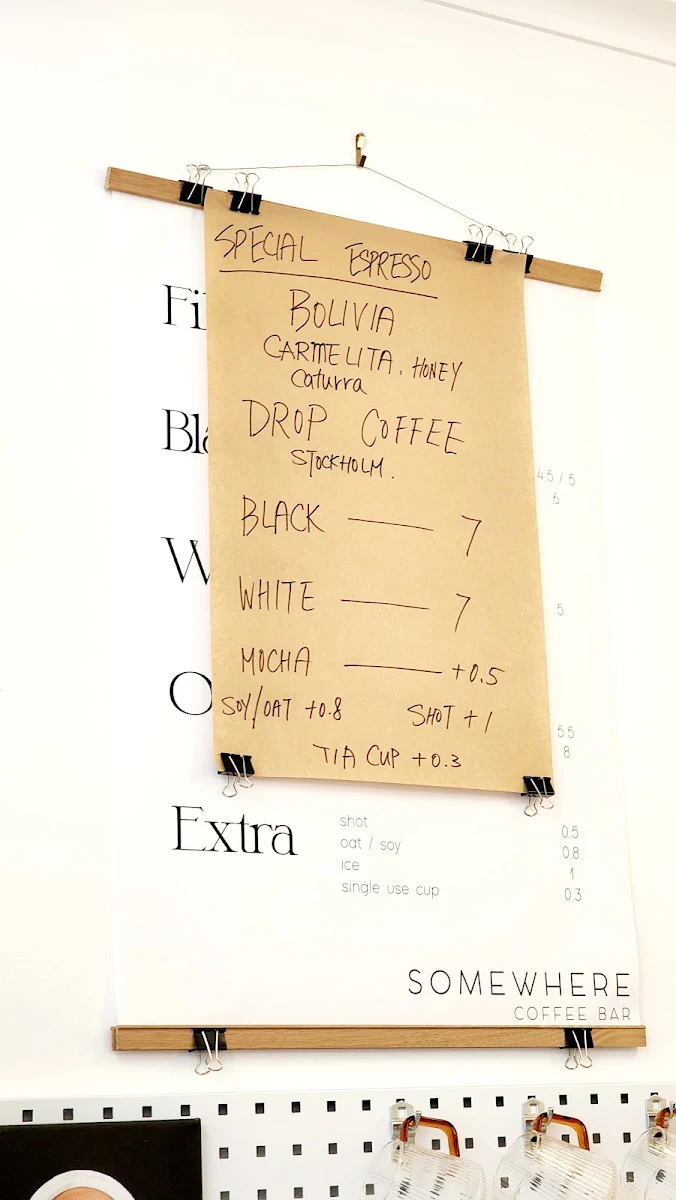 SPECIAL ESPRESSO
BOLIVIA
CARMELITA. HONEY
Caturra
DROP COFFEE
STOCKHOLM.
BLACK — 7
WHITE — 7
MOCHA — +0.5
SOY/OAT +0.8 SHOT +1
TIA CUP +0.3
4.5 / 5
6
5
5.5
8
Extra
shot 0.5
oat / soy 0.8
ice 1
single use cup 0.3
SOMEWHERE
COFFEE BAR